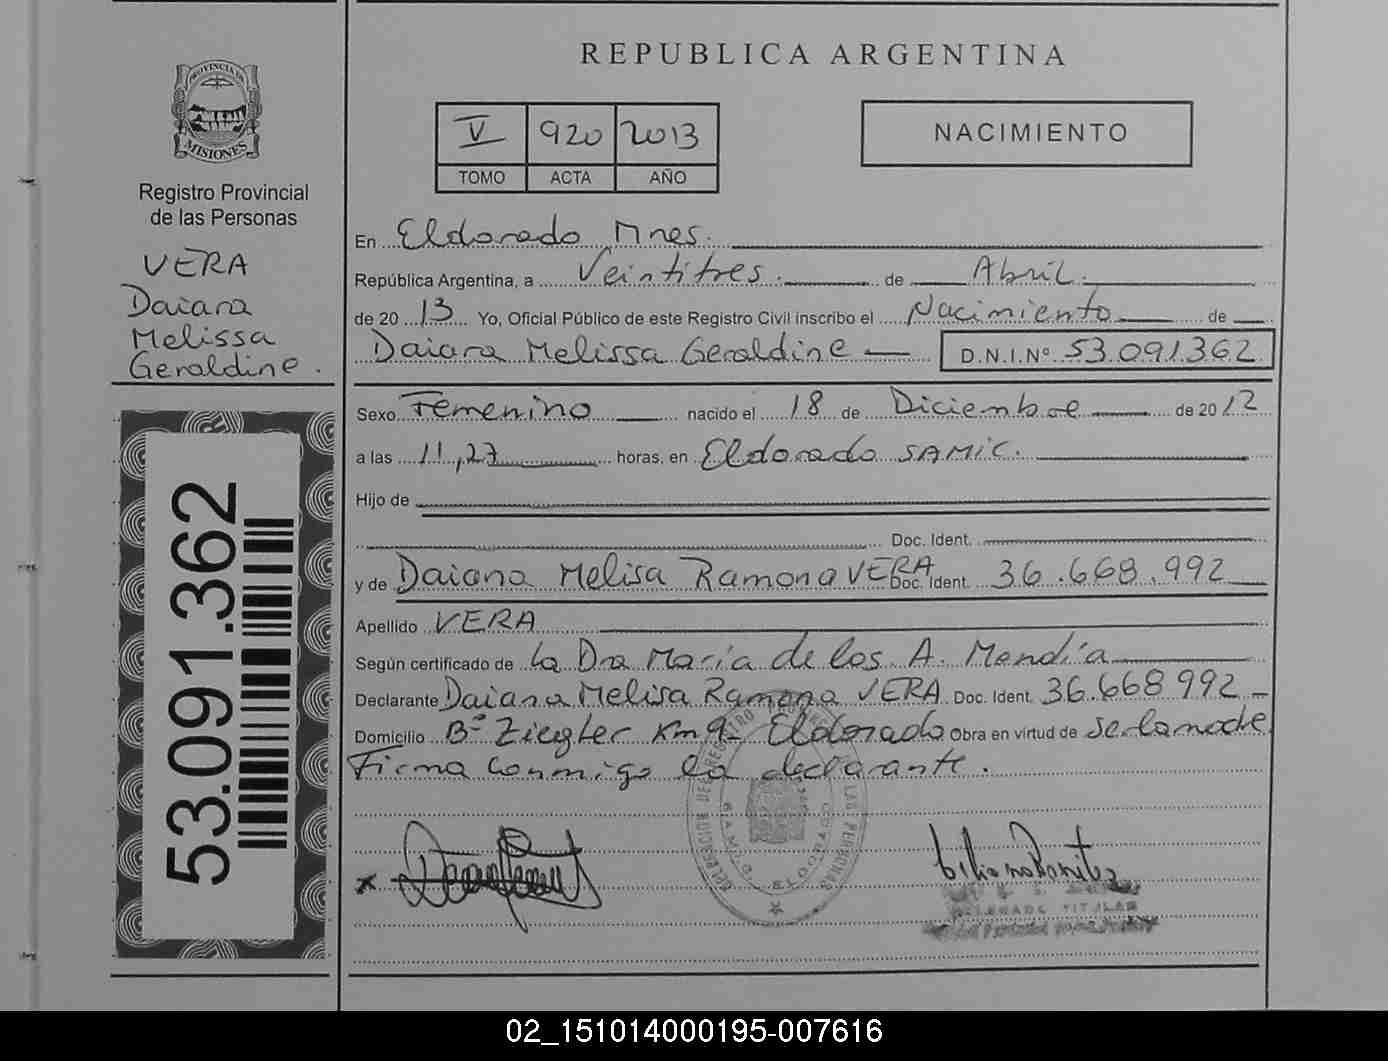 PROVINCIA DE
MISIONES
Registro Provincial
de las Personas
VERA
Daiara
Melissa
Geraldine.
53.091.362
REPUBLICA ARGENTINA
V 920 2013
TOMO ACTA AÑO
NACIMIENTO
En Eldorado Mnes.
República Argentina, a Veintitres. de Abril.
de 20 13 Yo, Oficial Público de este Registro Civil inscribo el Nacimiento de
Daiara Melissa Geraldine D.N.I.Nº 53.091.362
Sexo Femenino nacido el 18 de Diciembre de 20 12
a las 11,27 horas, en Eldorado SAMIC.
Hijo de
Doc. Ident.
y de Daiana Melisa Ramona VERA Doc. Ident. 36.668.992
Apellido VERA
Según certificado de la Dra María de los A. Mendía
Declarante Daiana Melisa Ramona VERA Doc. Ident. 36.668 992
Domicilio Bº Ziegler Km 9- Eldorado Obra en virtud de ser la madre
Firma conmigo la declarante.
x
ELDORADO
DELEGADA TITULAR
02_151014000195-007616